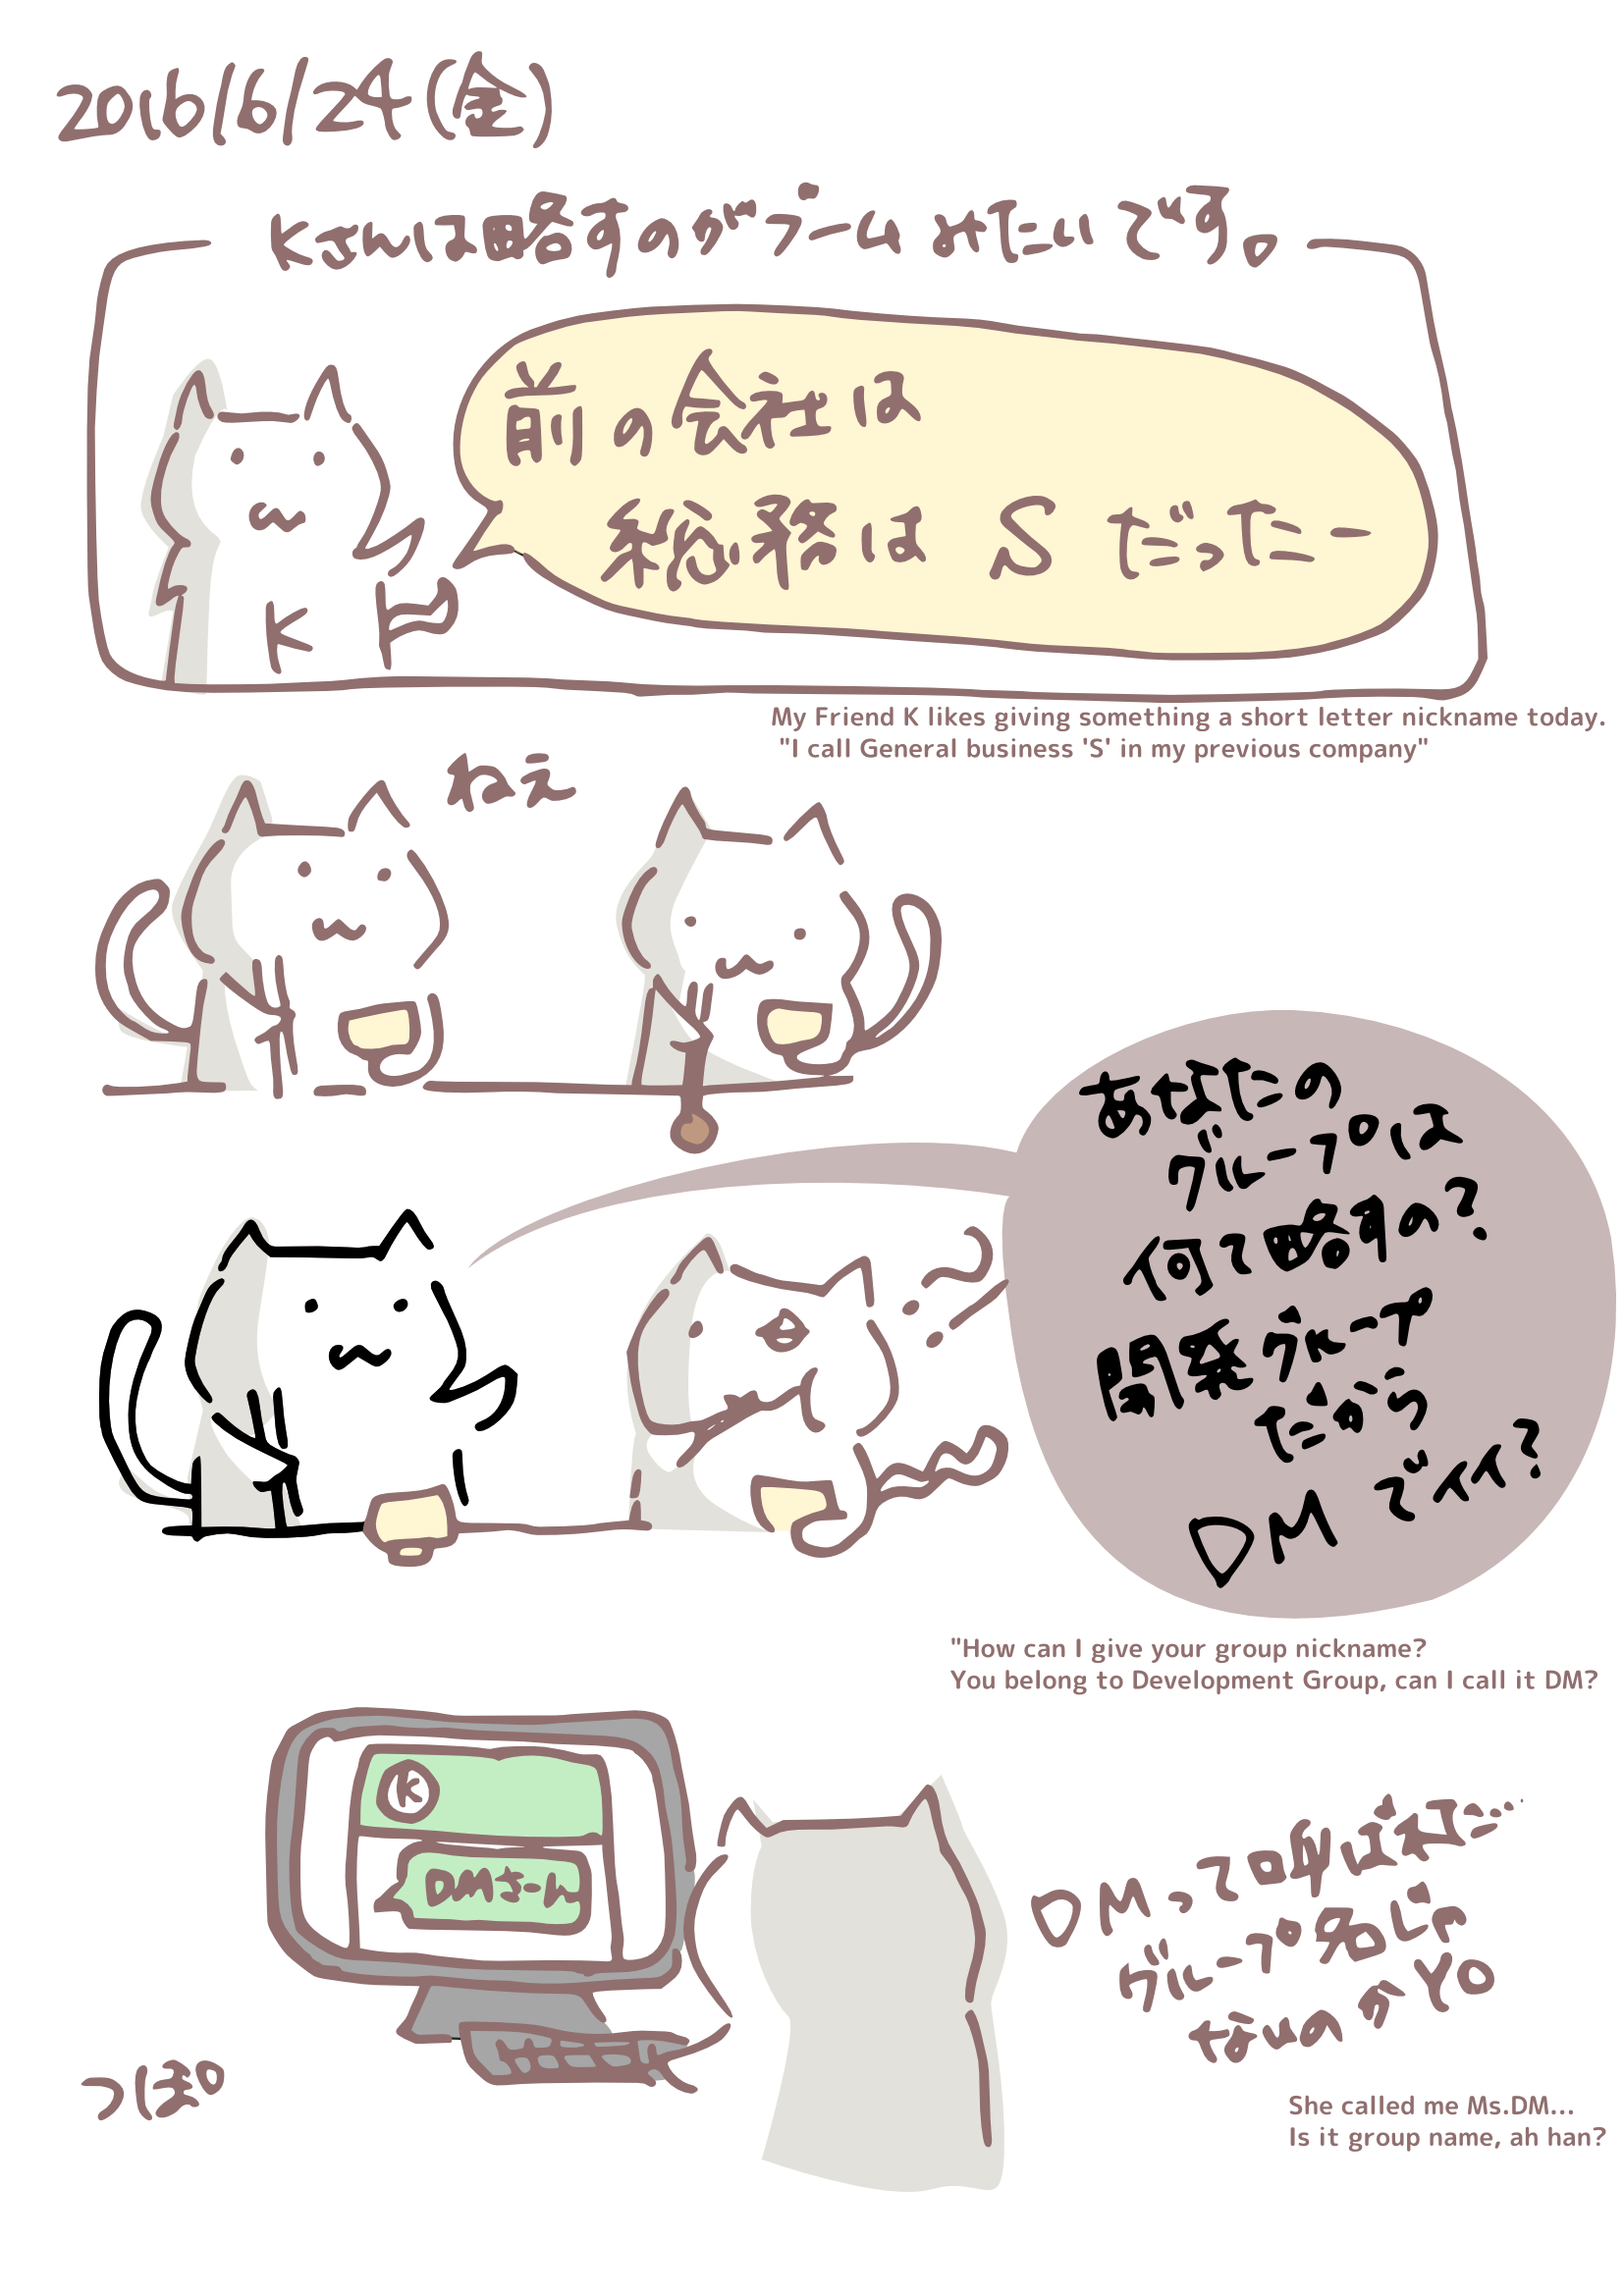 2016/6/24(金)
Kさんは略すのがブームみたいです。
前の会社は
総務はSだったー
K
My Friend K likes giving something a short letter nickname today.
"I call General business 'S' in my previous company"
ねえ
あなたの
グループは
何て略すの?
開発グループ
だから
DMでイイ?
"How can I give your group nickname?
You belong to Development Group, can I call it DM?
K
DMちーん
DMって呼ばれた…
グループ名じゃ
ないのかYO
つぽ
She called me Ms.DM...
Is it group name, ah han?